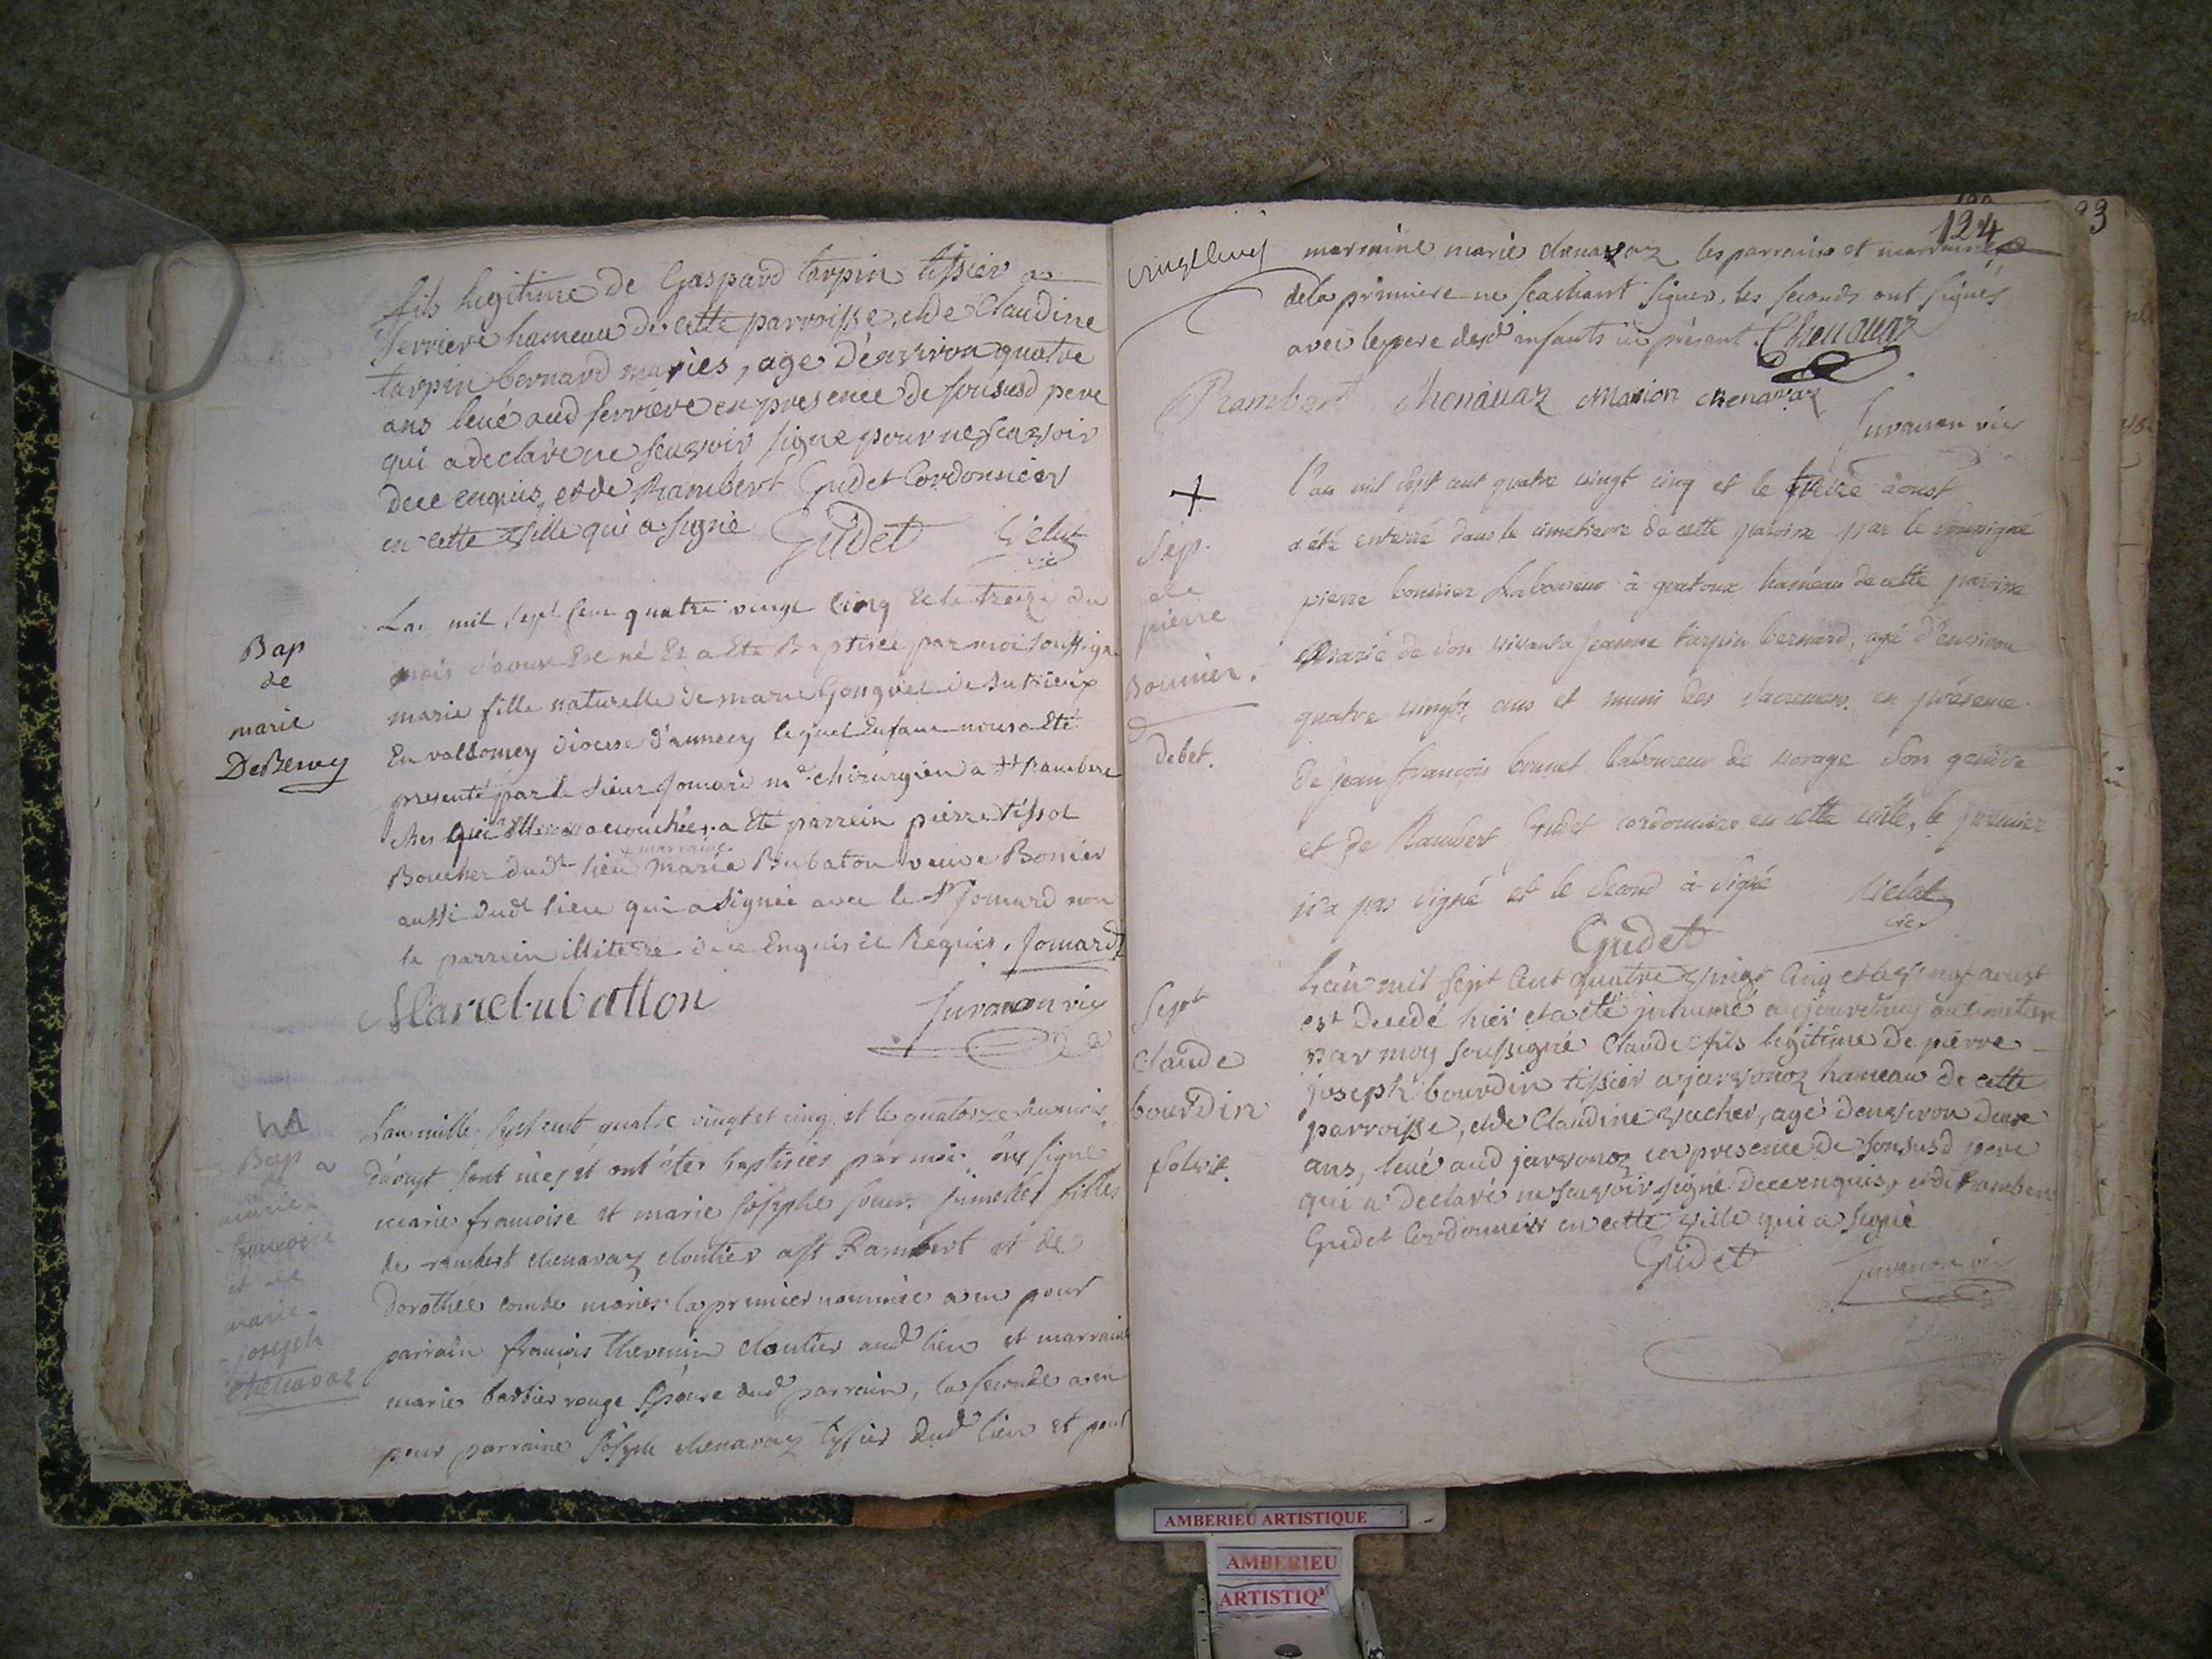 fils legitime de Gaspard tarpin tissier a
Serriere hameau de cette parroisse, et de Claudine
tarpin bernard mariés, age d'environ quatre
ans levé aud serriere en presence de sonsusd pere
qui a declaré ne scavoir signe pour ne scavoir
dece enquis, et de Rambert Gudet Cordonnier
en cette ville qui a signé Gudet
vic
Bap
de
marie
DeBerney
Lan mil sept cent quatre vingt Cinq et le treize du
mois d'aoux Est né Et a Eté Baptisée par moi soussigné
marie fille naturelle de marie Gonguet de Sutrieux
En valromey diocese d'annecy lequel Enfant nous a Eté
presenté par le sieur Jomard md chirurgien a St Rambert
ches qui Elle a accouchée, a Eté parrein pierre tissot
Boucher dudt lieu marraine marie Bubaton veuve Bonier
aussi dudt lieu qui a signée avec le Sr Jomard non
le parrein illiteré de ce Enquis et Requis. Jomard
Marie bubatton Juvanon vic
Bap
de
marie
francoise
et de
marie
joseph
chenavaz
L'an mille sept cent quatre vingt et cinq et le quatorze du mois
d'aoust sont nées et ont étés baptisées par moi sous signé
marie francoise et marie josephe soeurs jumelles filles
de rambert chenavaz cloutier a St Rambert et de
Dorothée combe mariés la premier nommée a eu pour
parrain françois thevenin cloutier aud lieu et marraine
marie barbier rouge Epouse dud parrain, la seconde a eu
pour parraine joseph chenavaz tissier dud lieu et pour
124
marraine marie chenavaz les parrains et marraines
de la primiere ne scachant signer, les seconds ont signés
avec le pere desd infants ici présent. Chenavaz
Rambert Chenavaz Marion chenavaz
Juvanon vic
Sep.
de
pierre
Bonnier.
debet.
l'an mil sept cent quatre vingt cinq et le treize aoust
a été enterré dans le cimetiere de cette paroisse par le soussigné
pierre bonnier Laboureur à gratoux hameau de cette paroisse
marié de son vivant a jeanne tarpin bernard, agé d'environ
quatre vingts ans et muni des sacremens, en présence
de jean françois brunet laboureur de vorage son gendre
et de Rambert Gudet cordonnier en cette ville, le premier
n'a pas signé et le second à signé
vic.
Gudet
Sept
Claude
bourdin
solvit.
L'an mil sept Cent quatre vingt Cinq et le vingt aoust
est decedé hier et a été inhumé aujourdhuy au cimetiere
par moy soussigné Claude fils legitime de pierre
joseph bourdin tissier a jarvonoz hameau de cette
parroisse, et de Claudine vucher, agé denviron deux
ans, levé aud jarvonoz en presence de sonsusd pere
qui a declaré ne scavoir signé dece enquis, et de Rambert
Gudet Cordonnier en cette ville qui a signé
Gudet Juvanon vic
AMBERIEU ARTISTIQUE
AMBERIEU
ARTISTIQ